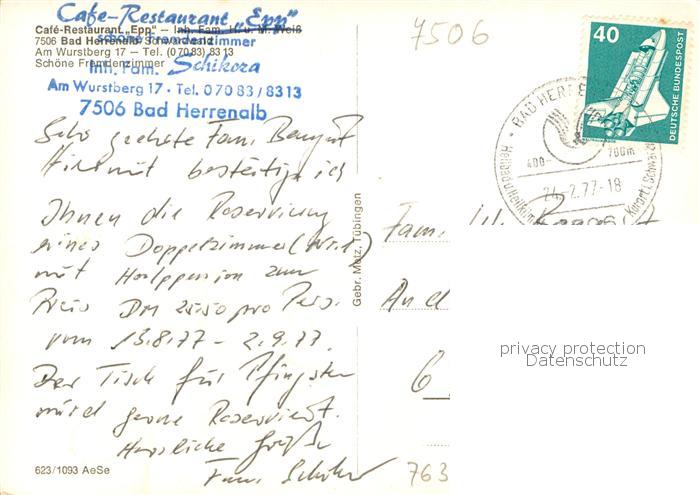 Cafe-Restaurant „Epp“
Café-Restaurant „Epp“ — Inh. Fam. H. u. M. Weiß
schöne Fremdenzimmer
7506 Bad Herrenalb Schwarzwald
Am Wurstberg 17 — Tel. (07083) 8313
Schöne Fremdenzimmer
Inh. Fam. Schikora
Am Wurstberg 17 · Tel. 07083/8313
7506 Bad Herrenalb
7506
40
DEUTSCHE BUNDESPOST
BAD HERRE
400- 700m
24.-2.77-18
Heilbad u. Heilklim
Kurort i. Schwarz
Sehr geehrte Fam.
Hiermit bestätige ich
Ihnen die Reservierung
eines Doppelzimmer
mit Halbpension zum
Preis DM pro Pers.
vom 13.8.77 - 2.9.77.
Der Tisch für Pfingsten
wird gerne Reserviert.
Herzliche Grüße
Fam.
Gebr. Metz, Tübingen
Fam.
An d
6
763
623/1093 AeSe
privacy protection
Datenschutz